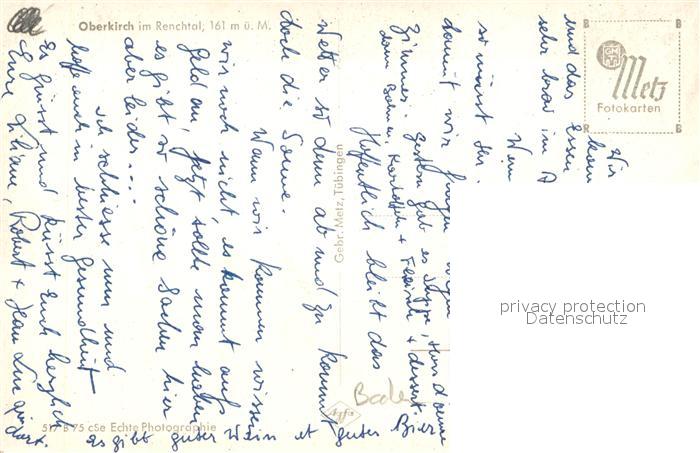 Oberkirch im Renchtal, 161 m ü. M.
B B
Metz
Fotokarten
R B
Gebr. Metz, Tübingen
Agfa
517 B 75 cSe Echte Photographie
privacy protection
Datenschutz
Wir
kom
und das Essen
sehr brav im
Wein
so müsst Ihr
damit wir
Zimmer.
Gestern gab es Suppe,
Kartoffeln + Fleisch + dessert.
Hoffentlich bleibt das
Wetter so denn ab und zu kommt
doch die Sonne.
Wann wir kommen wissen
wir noch nicht, es kommt aufs
Geld an, jetzt sollte man haben
es gibt so schöne Sachen hier
aber leider....
Ich schliesse nun und
hoffe euch in bester Gesundheit
Es grüsst und küsst Euch herzlich
Eure Liliane, Robert + Jean Luc
es gibt guter Wein et guter Bier
Baden